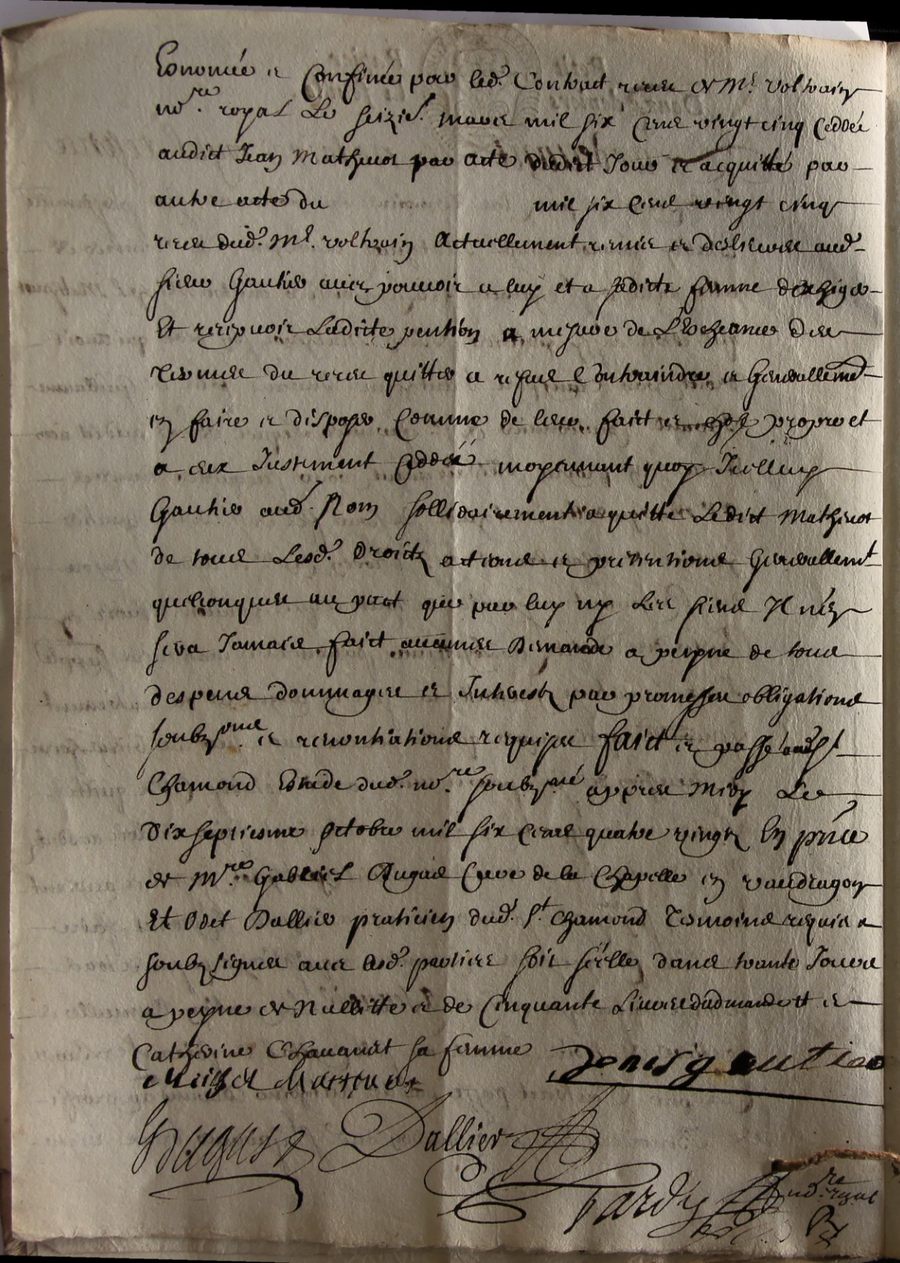 et confinée par led. Contract receu de Mr. Voltrain
nore. royal Le seizie. mars mil six cens vingt cinq ceddée
audict Jean Mathieu par acte dudict Jour et acquitté par
autre acte du mil six cens vingt cinq
receu dud. Mr. Voltrain actuellement remis et deslivrée aud.
sieur Gautier avec pouvoir a luy et a sadicte femme d'exiger
Et recepvoir Ladicte pention a mesure de L'escheance des
termes du receu quitter a refus Contraindre et Generallement
en faire et disposer Comme de leur faict et propre et
a eux Justement ceddée moyennant quoy Icelluy
Gautier aud. Nom sollidairement a quitté Ledict Mathieu
de tous Lesd. Droictz actions et pretentions Generallemt.
quelconques au pact que par luy ny Les siens Il n'en
sera Jamais faict aucune Demande a peyne de tous
despens dommages et Interestz par promesses obligations
soubzmons et renontiations requises faict et passé aud. St.
Chamond Estude dud. nore. soubzné apres Midy Le
Dixseptiesme octobre mil six cens quatre vingtz En pnce
de Mre. Gabriel Cure de la Chapelle en vaudragon
Et Odet Dallier praticien dud. St. Chamond tesmoins requis
soubz signes avec lesd. parties soit séellé dans trante Jours
a peyne de Nullitté et de Cinquante Livres d'admande et
Catherine Chavanat sa femme
denis gautier
Dallier
Tardy nore. royal